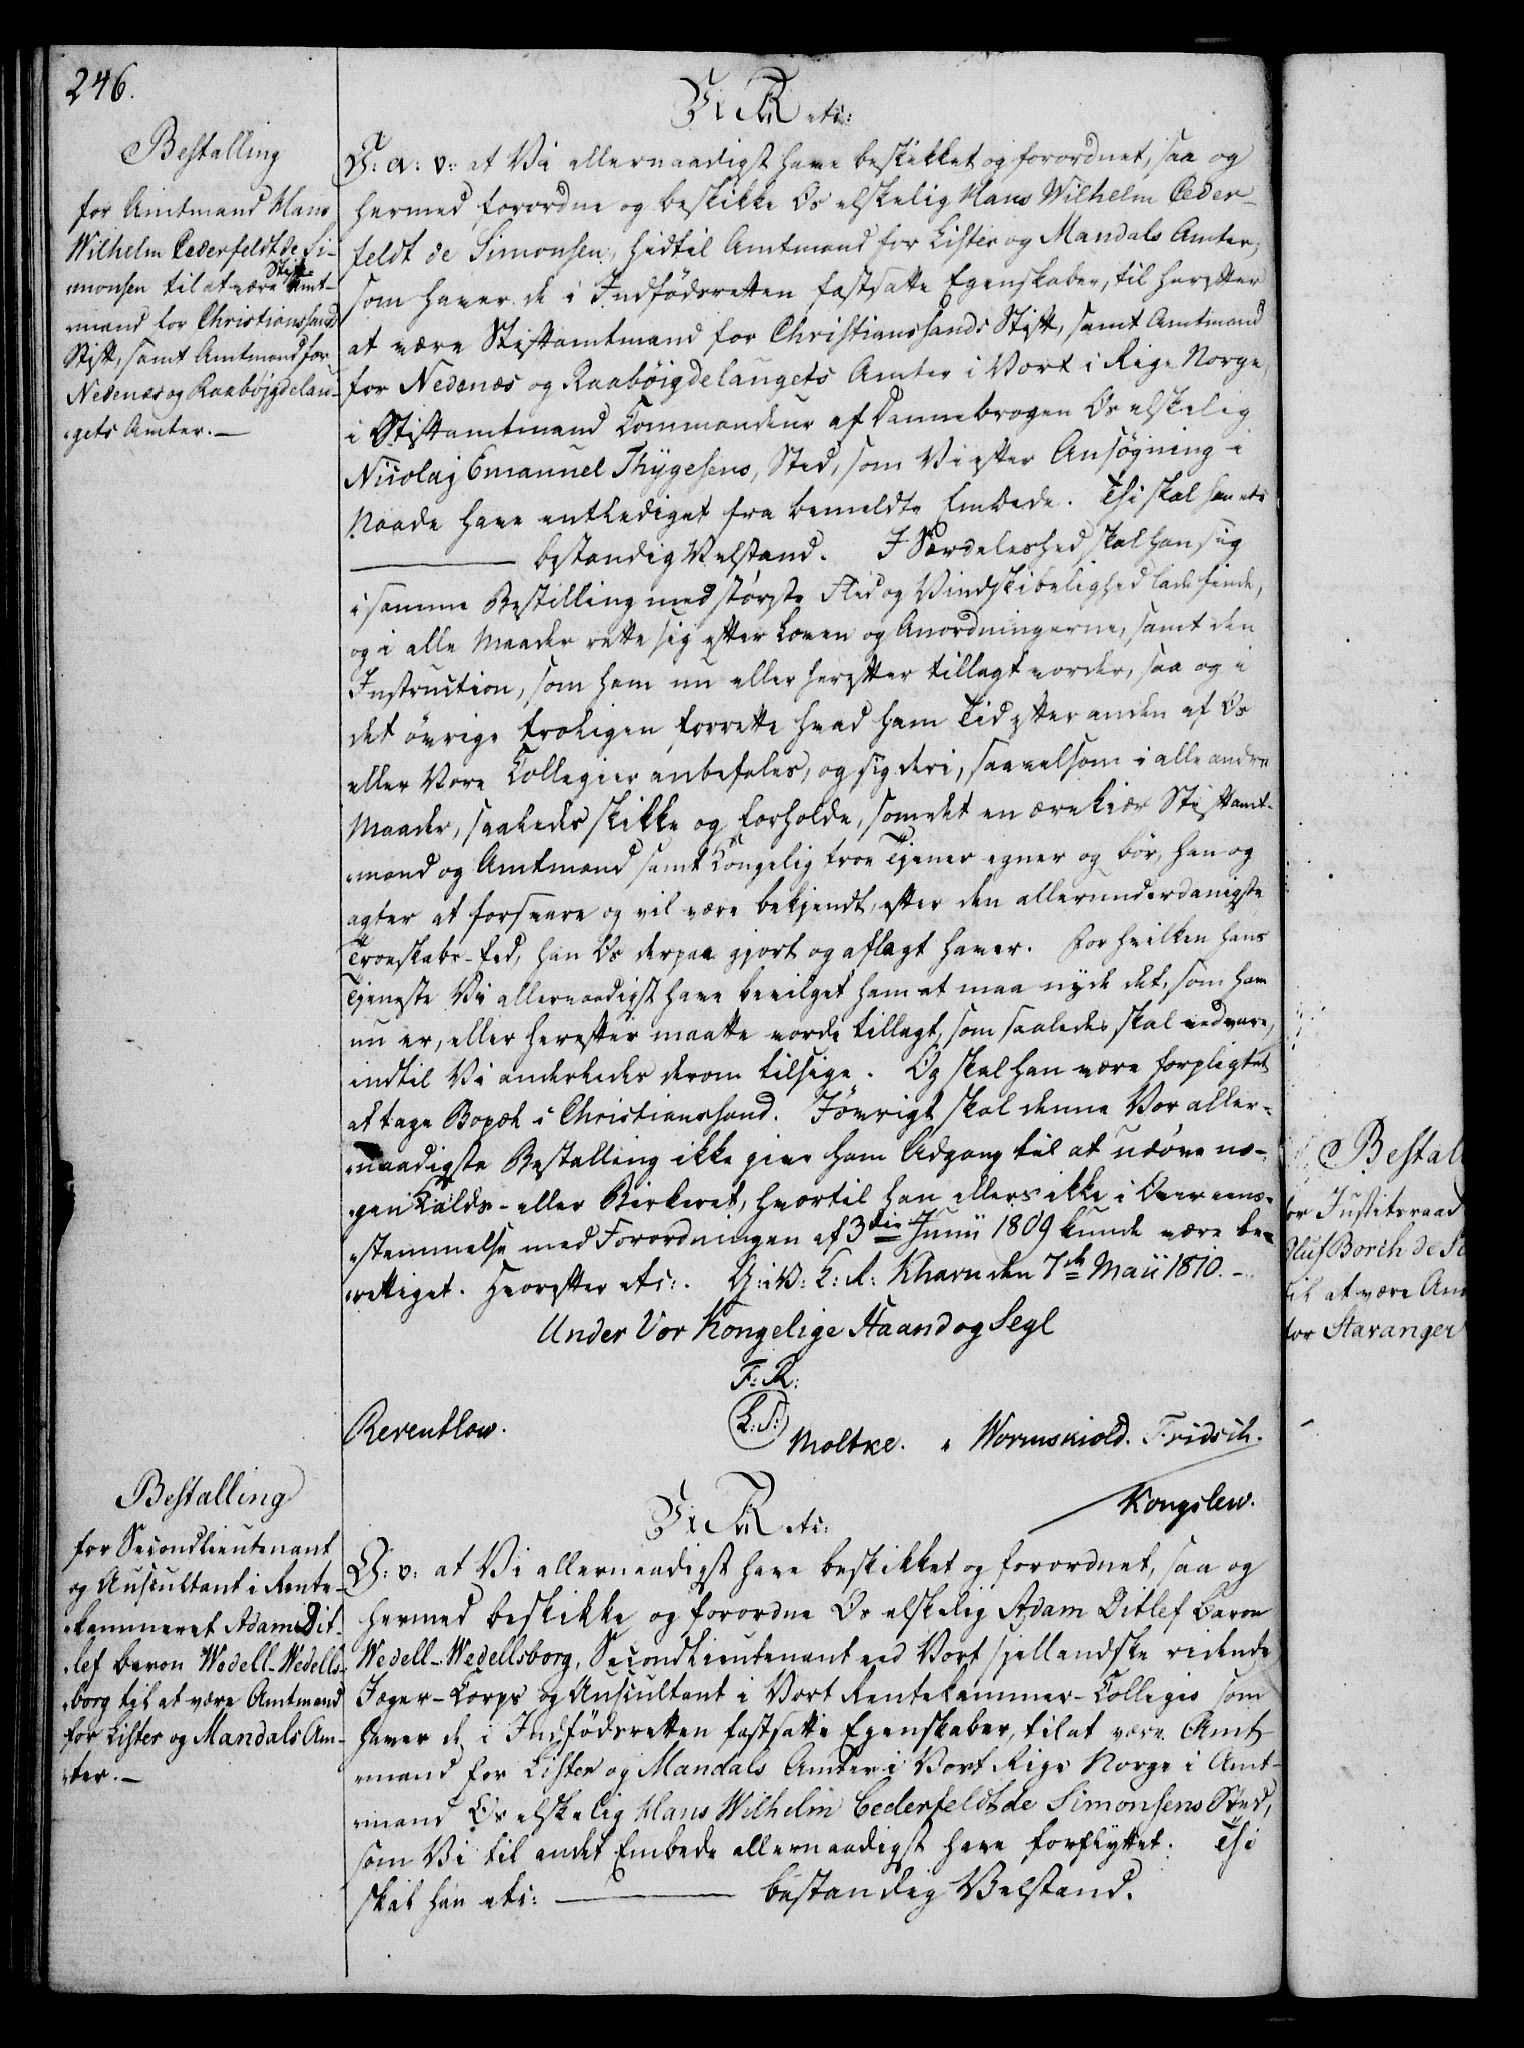 246.
Bestalling
for Amtmand Hans
Wilhelm Cederfeldt de Si-
monsen til at være Stift Amt-
mand for Christianssands
Stift, samt Amtmand for
Nedenæs og Raabøjgdelau-
gets Amter. —
Vi FR VI etc:
G: a: v: at Vi allernaadigst have beskikket og forordnet, saa og
hermed forordne og beskikke Os elskelig Hans Wilhelm Ceder-
feldt de Simonsen, hidtil Amtmand for Lister og Mandals Amter,
som haver de i Indfødsretten fastsatte Egenskaber, til herefter
at være Stiftamtmand for Christianssands Stift, samt Amtmand
for Nedenæs og Raabøigdelaugets Amter i Vort i Rige Norge,
i Stiftamtmand Commandeur af Dannebrogen Os elskelig
Nicolaj Emanuel Thygesens, Sted, som Vi efter Ansøgning i
Naade have entlediget fra bemeldte Embede. Thi skal han etc
——— bestandig Velstand. I Særdeleshed skal han sig
i samme Bestilling med største Flid og Vindskibelighed lade finde,
og i alle Maader rette sig efter Loven og Anordningerne, samt den
Instruction, som ham nu eller herefter tillagt vorder, saa og i
det øvrige troligen forrette hvad ham Tid efter anden af Os
eller Vore Collegier anbefales, og sig deri, saavelsom i alle andre
Maader, saaledes skikke og forholde, som det en ærekiær Stiftamt-
mand og Amtmand samt Kongelig troe Tjener egner og bør, han og
agter at forsvare og vil være bekjendt, efter den allerunderdanigste
Troeskabs-Eed, han Os derpaa gjort og aflagt haver. For hvilken hans
Tjeneste Vi allernaadigst have bevilget ham at maa nyde det, som ham
nu er, eller herefter maatte vorde tillagt, som saaledes skal vedvare,
indtil Vi anderledes derom tilsige. Og skal han være forpligtet
at tage Bopæl i Christianssand. Iøvrigt skal denne Vor aller-
naadigste Bestalling ikke give ham Adgang til at udøve no-
gen Kalds- eller Birkeret, hvortil han ellers ikke i Overeens-
stemmelse med Forordningen af 3die Junii 1809 kunde være be-
rettiget. Hvorefter etc:. G: i V: K: R: Khavn den 7de Maii 1810. —
Under Vor Kongelige Haand og Segl
F: R:
(L: S:)
Reventlow.
Moltke. Wormskiold. Fridsch.
Kongslew.
Bestalling
for Secondlieutenant
og Auscultant i Rente-
kammeret Adam Dit-
lef baron Wedell-Wedells-
borg til at være Amtmand
for Lister og Mandals Am-
ter. —
Vi FR VI etc:
G: v: at Vi allernaadigst have beskikket og forordnet, saa og
hermed beskikke og forordne Os elskelig Adam Ditlef baron
Wedell-Wedellsborg, Secondlieutenant ved Vort sjellandske ridende
Jæger-Corps og Auscultant i Vort Rentekammer-Collegio som
haver de i Indfødsretten fastsatte Egenskaber, til at være Amt
mand for Lister og Mandals Amter i Vort Rige Norge i Amt-
mand Os elskelig Hans Wilhelm Cederfeldt de Simonsens Sted,
som Vi til andet Embede allernaadigst have forflyttet. Thi
skal han etc: ——— bestandig Velstand.
Bestall
for Justitsraad
Oluf Borch de
til at være Am
for Stavanger